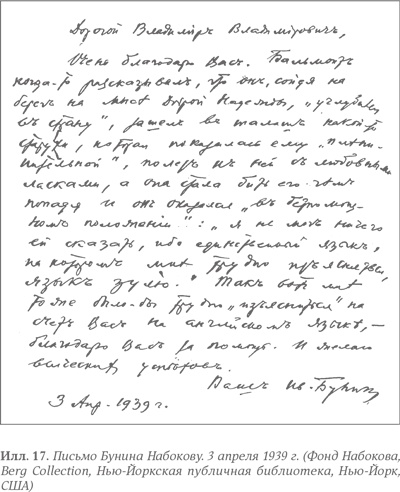 Дорогой Владимiръ Владимiровичъ,
Очень благодарю Васъ. Бальмонтъ
когда-то разсказывалъ, что онъ, сойдя на
берегъ на мысѣ Доброй Надежды, „углубился
въ страну", зашелъ въ шалашъ какой-то
старухи, которая показалась ему „плѣни-
тельной", полѣзъ къ ней съ любовными
ласками, а она стала бить его чѣмъ
попадя и онъ оказался „въ безпомощ-
номъ положенiи": „я не могъ ничего
ей сказать, ибо единственный языкъ,
на которомъ мнѣ трудно изъясняться,
языкъ зулю." Такъ вотъ мнѣ
тоже было-бы трудно „изъясниться" на
счетъ Васъ на англiйскомъ языкѣ, —
благодарю Васъ за помощь. И желаю
всяческихъ успѣховъ.
Вашъ Ив. Бунинъ
3 Апр. 1939 г.
Илл. 17. Письмо Бунина Набокову. 3 апреля 1939 г. (Фонд Набокова,
Berg Collection, Нью-Йоркская публичная библиотека, Нью-Йорк,
США)